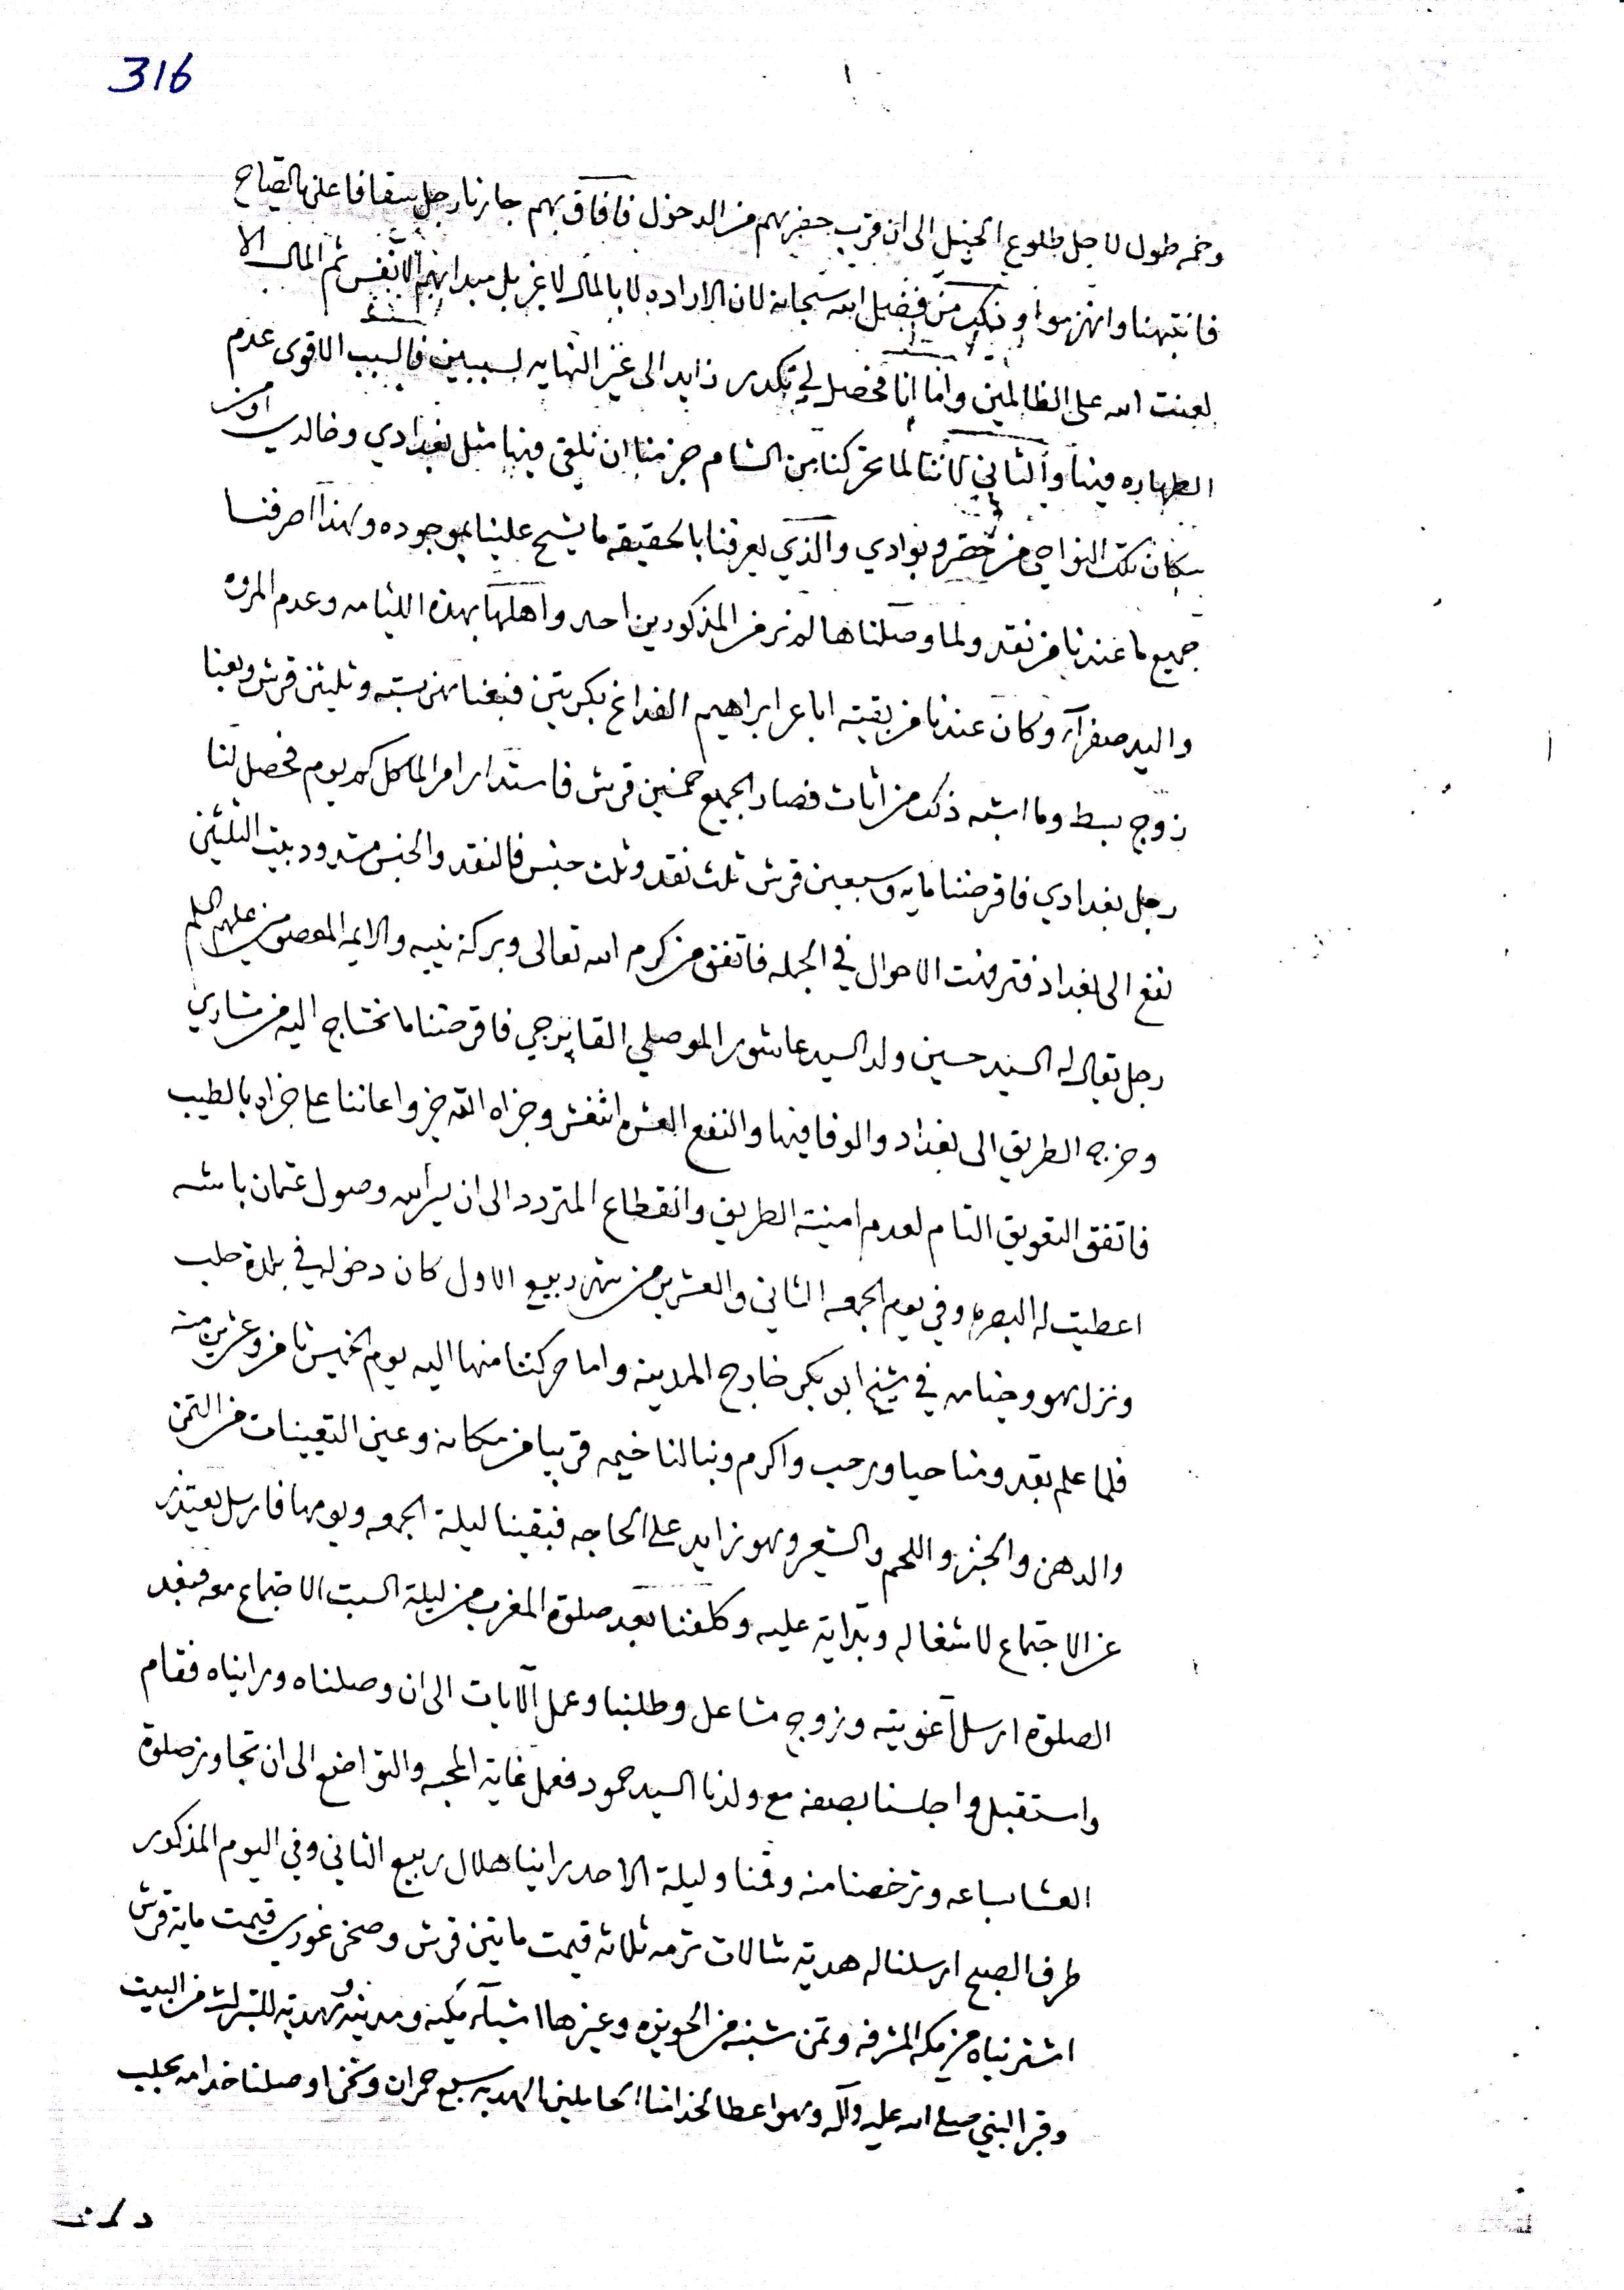 316
١
وخمه طول لاجل طلوع الخيل الى ان قرب حفرهم من الدخول فافاق بهم جارنا رجل سقافا على بالصياح
فانتبهنا وانهزموا وذلك من فضل الله سبحانه لان الاراده لا بالمال لا غير بل مبداهم الانفس ثم المال الا
لعنت الله على الظالمين واما انا فحصل لي تكدر زايد الى غير النهايه لسببين فالسبب الاقوى عدم
الطهاره فيها والثاني لاننا لما تحركنا من الشام جزمنا ان نلقى فيها مثل بغدادي وخالدي او من
سكان تلك النواحي من حضر وبوادي والذي يعرفنا بالحقيقه ما يشح علينا بموجوده ولهذا اصرفنا
جميع ما عندنا من نقد ولما وصلناها لم نر من المذكورين احد واهلها بهذه اللئامه وعدم المروه
واليد صفرآء وكان عندنا من بقيته اباعر ابراهيم الفداغ بكرتين فبعناهن بسته وثلثين قرش وبعنا
زوج بسط وما اشبه ذلك من اثاث فصار الجميع خمسين قرش فاستدار امر الماكل كم يوم فحصل لنا
رجل بغدادي فاقرضنا مايه وسبعين قرش ثلث نقد وثلث جنس فالنقد والجنس مردود بليت الثلثين
نفع الى بغداد فترفهت الاحوال في الجمله فاتفق من كرم الله تعالى وبركة نبيه والايمه المعصومين عليهم السلم
رجل يقال له السيد حسين ولد السيد عاشور الموصلي القايرجي فاقرضنا ما نحتاج اليه من مشاري
وخرجه الطريق الى بغداد والوفا فيها والنفع العشره اثنعش وجزاه الله خير واعاننا على جزاه بالطيب
فاتفق التعويق التام لعدم امنية الطريق وانقطاع المتردد الى ان يسر الله وصول عثمان باشه
اعطيت له البصره وفي يوم الجمعه الثاني والعشرين من شهر ربيع الاول كان دخوله في بلدة حلب
ونزل هو وخيامه في شيخ ابو بكر خارج المدينه واما حركتنا منها اليه يوم الخميس ثامن وعشرين منه
فلما علم بقدومنا حيا ورحب واكرم وبنا لنا خيمه قريبا من مكانه وعين التعينات من التمن
والدهن والخبز واللحم والشعير وهو زايد على الحاجه فبقينا ليلة الجمعه ويومها فارسل يعتذر
عن الاجتماع لاشغاله وتراية عليه وكلفنا بعد صلوة المغرب من ليلة السبت الاجتماع معه فبعد
الصلوة ارسل آغويته وزوج مشاعل وطلبنا وعمل الآيات الى ان وصلناه ورايناه فقام
واستقبل واجلسنا بصفه مع ولدنا السيد حمود فعمل غاية المحبه والتواضع الى ان تجاوز صلوة
العشا بساعه وترخصنا منه وقمنا وليلة الاحد راينا هلال ربيع الثاني وفي اليوم المذكور
طرف الصبح ارسلنا له هديه شالات ترمه ثلاثه قيمت مايتين قرش وصحن غوري قيمت ماية قرش
اشتريناه من مكه المشرفه وتمن شبنه من الحويزه وغيرها اشيآء مكيه ومدنيه هديه للتبرك من البيت
وقبر النبي صلى الله عليه وآله وهو اعطا لخدامنا الحاملين الهديه سبع حمران ونحن اوصلنا خدامه بحلب